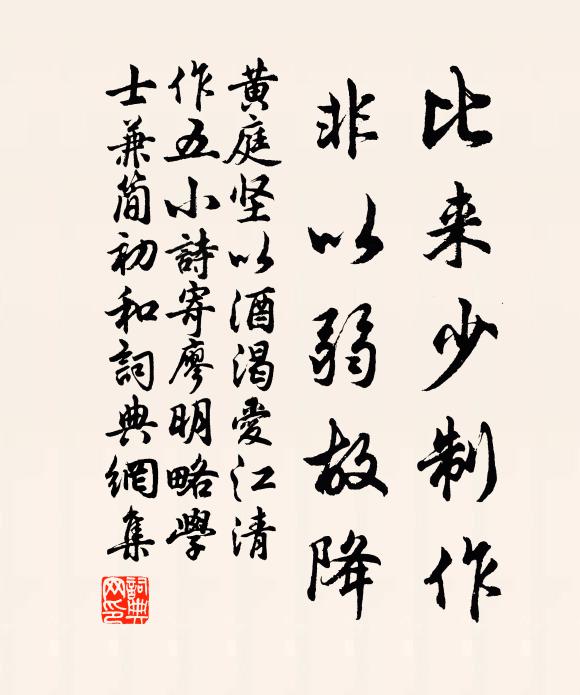 比来少制作
非以弱故降
黄庭坚以酒渴爱江清
作五小詩寄廖明略學
士兼简初和詞典網集
詞典
网印